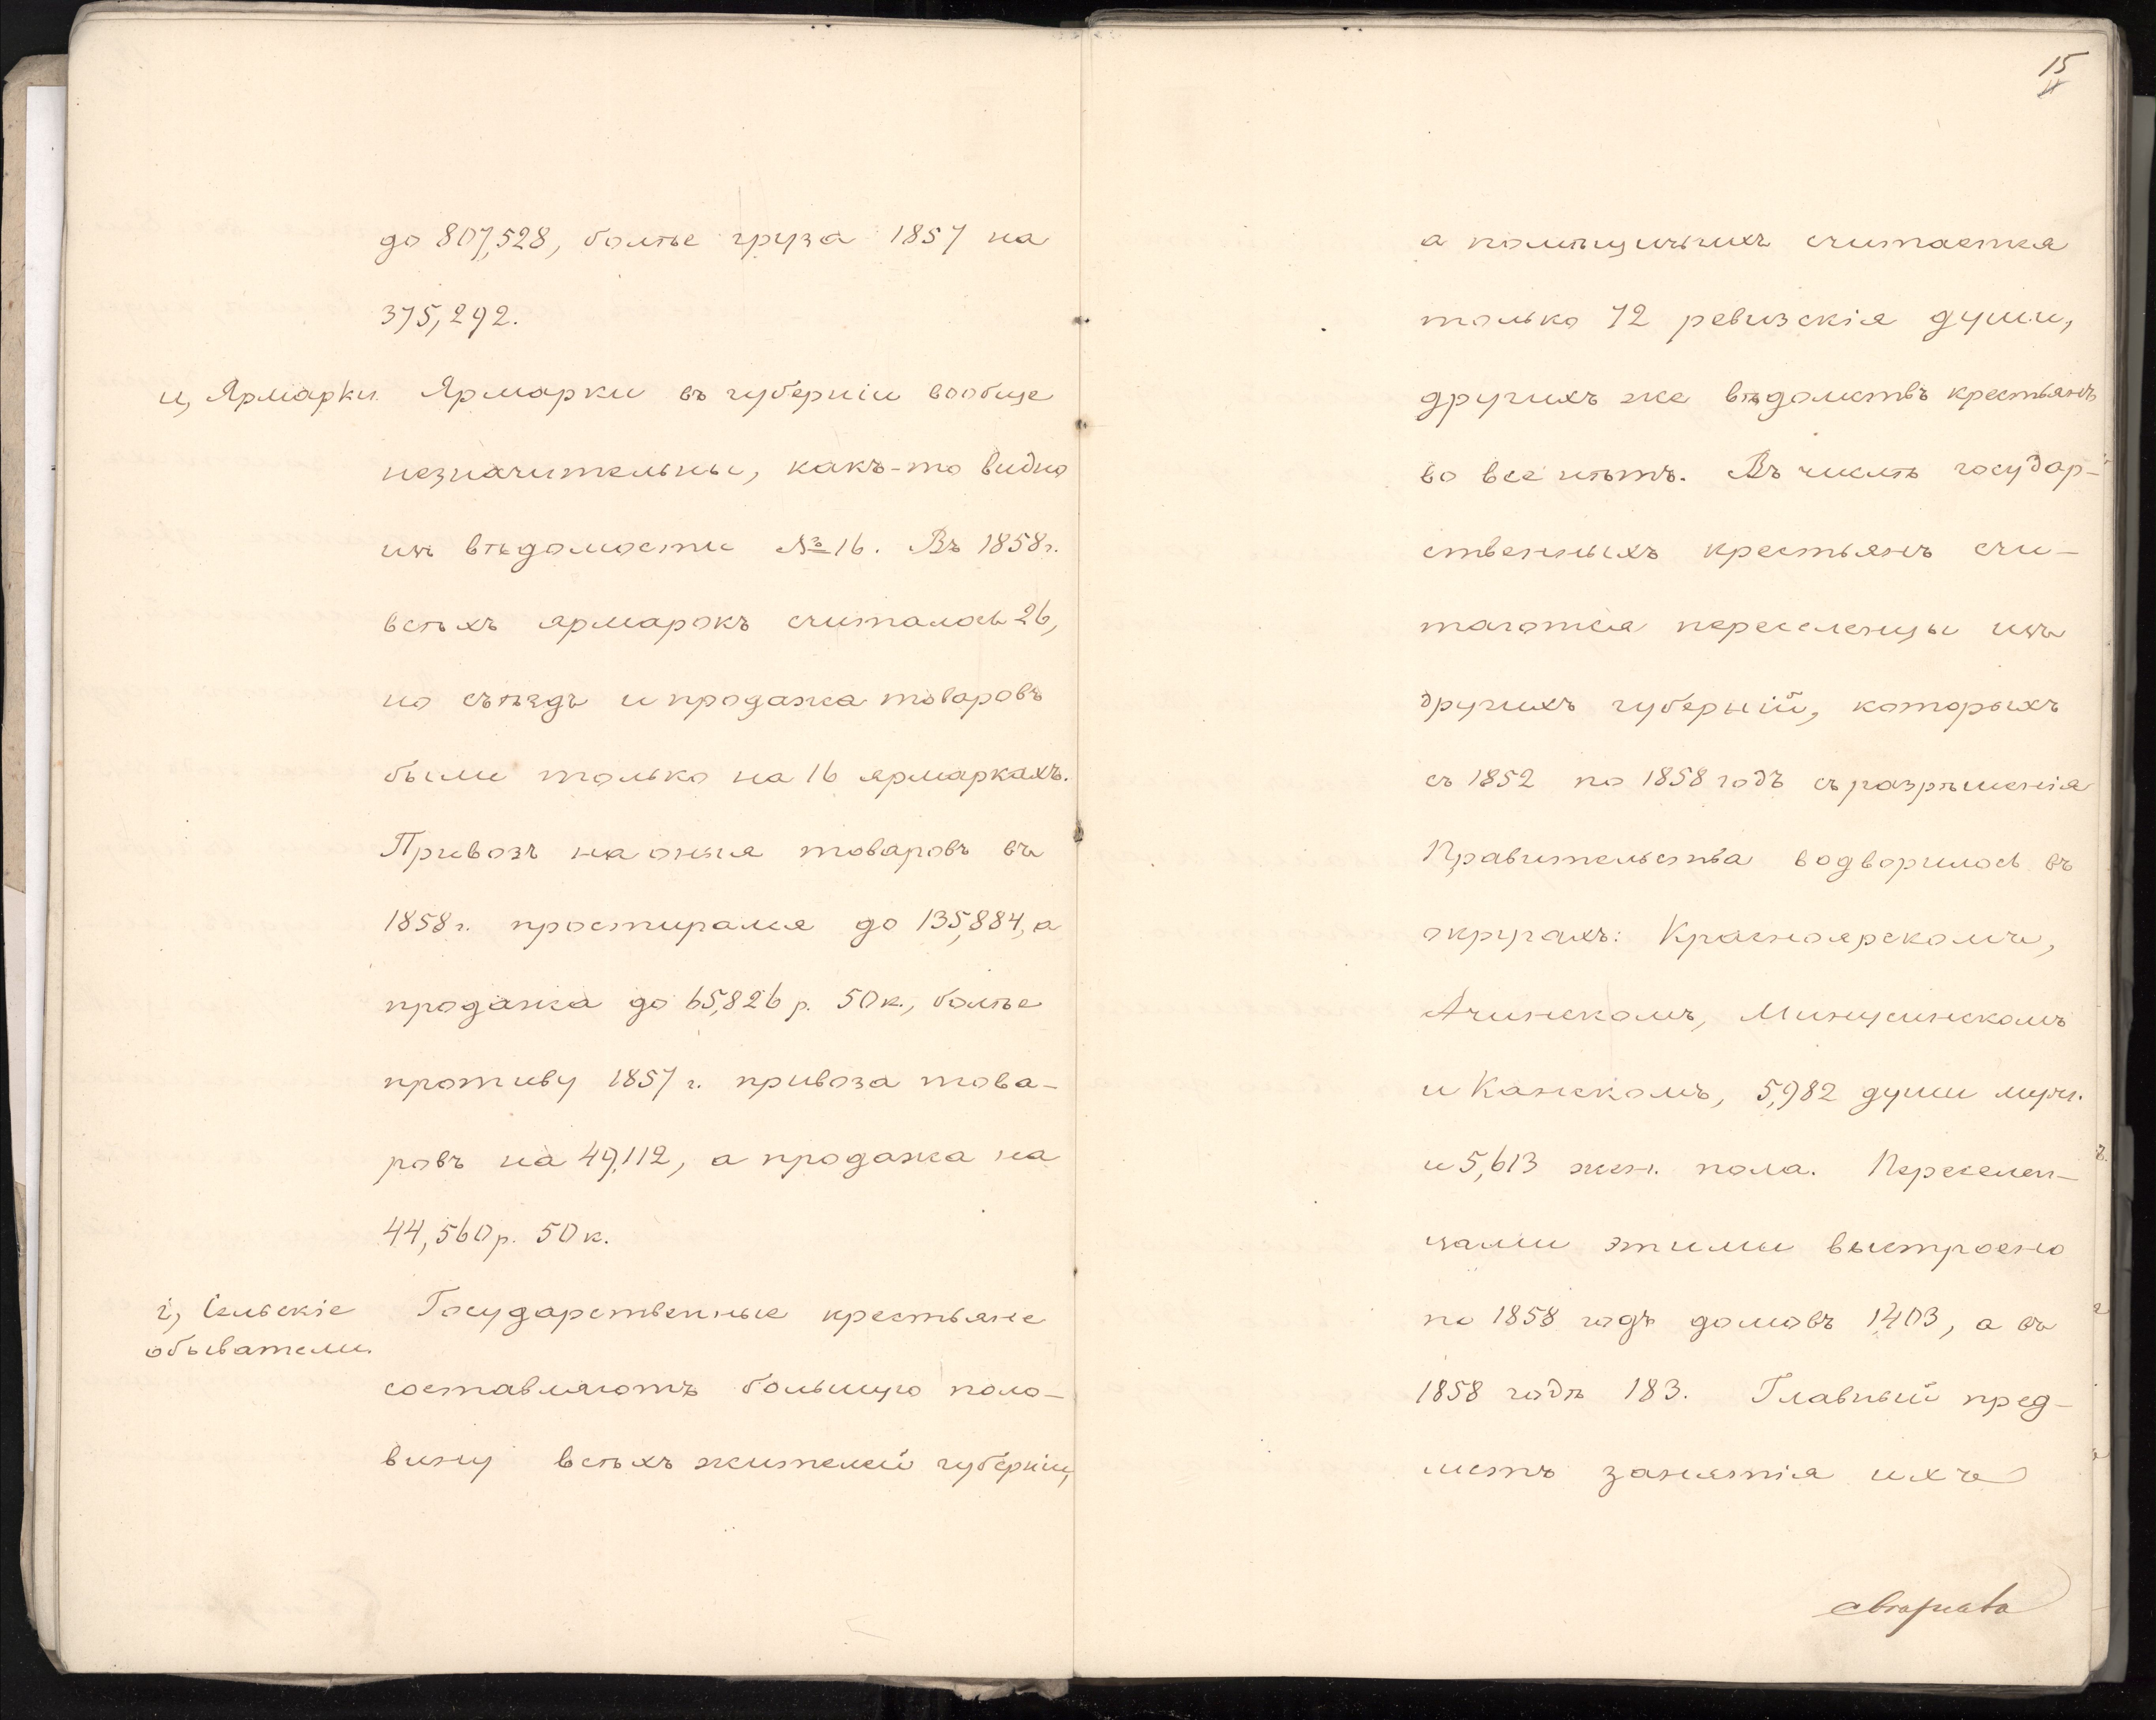 до 807,528, болѣе груза 1857 на
375,292.
и, Ярмарки. Ярмарки въ губерніи вообще
незначительны, какъ-то видно
изъ вѣдомости № 16. Въ 1858 г.
всѣхъ ярмарокъ считалось 26,
но съѣздъ и продажа товаровъ
были только на 16 ярмаркахъ.
Привозъ на оныя товаровъ въ
1858 г. простирался до 135,884, а
продажа до 65,826 р. 50 к., болѣе
противу 1857 г. привоза това-
ровъ на 49,112, а продажа на
44,560 р. 50 к.
і, Сельскіе
обыватели.
Государственные крестьяне
составляютъ большую поло-
вину всѣхъ жителей губерніи,
15
а помѣщичьихъ считается
только 72 ревизскія души,
другихъ же вѣдомствъ крестьянъ
во все нѣтъ. Въ числѣ государ-
ственныхъ крестьянъ счи-
таются переселенцы изъ
другихъ губерній, которыхъ
съ 1852 по 1858 годъ съ разрѣшенія
Правительства водворилось въ
округахъ: Красноярскомъ,
Ачинскомъ, Минусинскомъ
и Канскомъ, 5,982 души муж.
и 5,613 жен. пола. Переселен-
цами этими выстроено
по 1858 годъ домовъ 1403, а въ
1858 годѣ 183. Главный пред-
метъ занятія ихъ